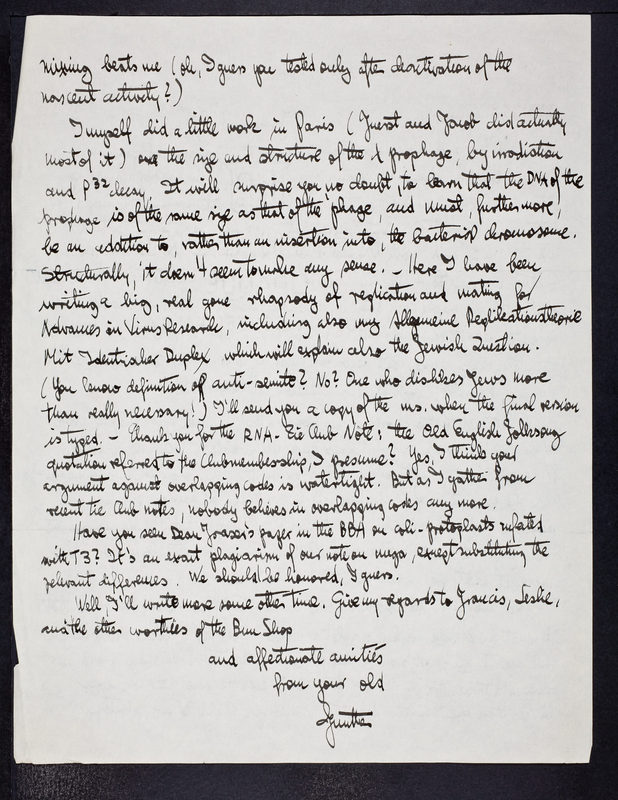 mixing beats me (oh, I guess you tested only after deactivation of the
nascent activity?)
I myself did a little work in Paris (Fuerst and Jacob did actually
most of it) on the size and structure of the λ prophage, by irradiation
and P32 decay. It will surprise you no doubt, to learn that the DNA of the
prophage is of the same size as that of the phage, and must, furthermore,
be an addition to, rather than an insertion into, the bacterial chromosome.
Structurally, it doesn't seem to make any sense. — Here I have been
writing a big, real gone rhapsody of replication and mating for
Advances in Virus Research, including also my Allgemeine Replikationstheorie
Mit Identischer Duplex which will explain also the Jewish Question.
(You know definition of anti-semite? No? One who dislikes Jews more
than really necessary!) I'll send you a copy of the ms. when the final version
is typed. — Thank you for the RNA-Tie Club Note; the Old English folksong
quotation referred to the Club membership, I presume? Yes, I think your
argument against overlapping codes is watertight. But as I gather from
recent tie Club notes, nobody believes in overlapping codes any more.
Have you seen Dean Fraser's paper in the BBA on coli-protoplasts infected
with T3? It's an exact plagiarism of our note on mega, except substituting the
relevant differences. We should be honored, I guess.
Well, I'll write more some other time. Give my regards to Francis, Leslie,
and the other worthies of the Bun Shop
and affectionate amitiés
from your old
Gunther